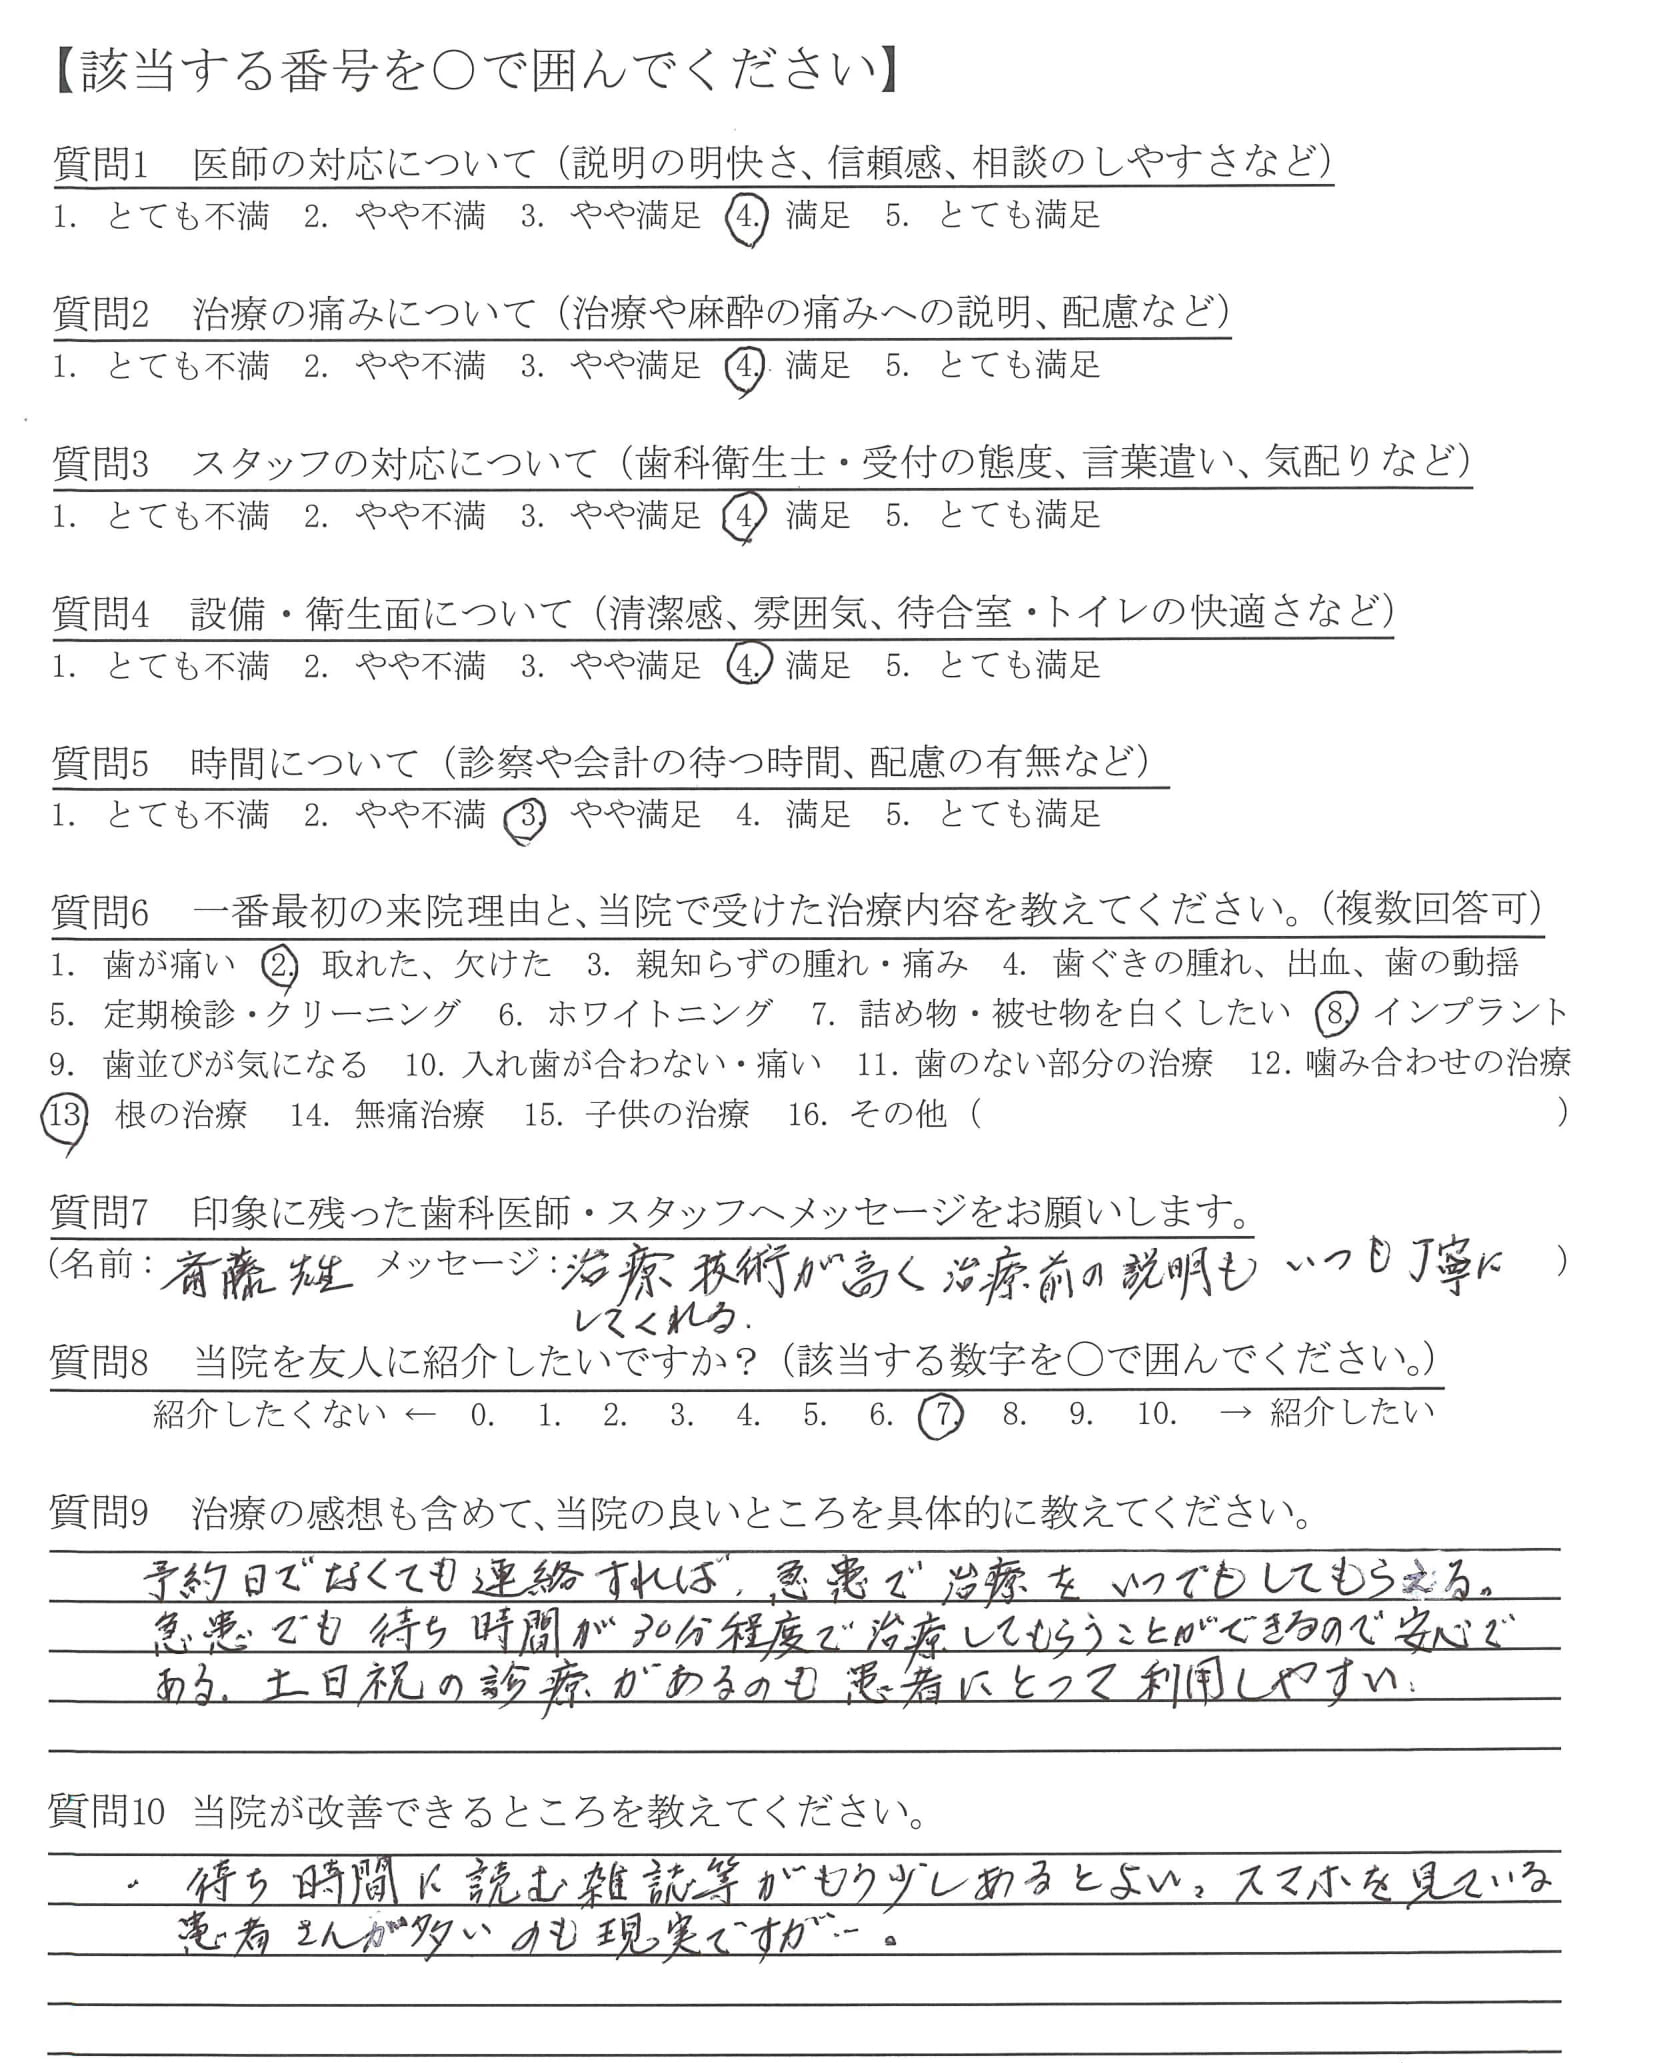 【該当する番号を○で囲んでください】
質問1 医師の対応について（説明の明快さ、信頼感、相談のしやすさなど）
1. とても不満 2. やや不満 3. やや満足 4. 満足 5. とても満足
質問2 治療の痛みについて（治療や麻酔の痛みへの説明、配慮など）
1. とても不満 2. やや不満 3. やや満足 4. 満足 5. とても満足
質問3 スタッフの対応について（歯科衛生士・受付の態度、言葉遣い、気配りなど）
1. とても不満 2. やや不満 3. やや満足 4. 満足 5. とても満足
質問4 設備・衛生面について（清潔感、雰囲気、待合室・トイレの快適さなど）
1. とても不満 2. やや不満 3. やや満足 4. 満足 5. とても満足
質問5 時間について（診察や会計の待つ時間、配慮の有無など）
1. とても不満 2. やや不満 3. やや満足 4. 満足 5. とても満足
質問6 一番最初の来院理由と、当院で受けた治療内容を教えてください。（複数回答可）
1. 歯が痛い 2. 取れた、欠けた 3. 親知らずの腫れ・痛み 4. 歯ぐきの腫れ、出血、歯の動揺
5. 定期検診・クリーニング 6. ホワイトニング 7. 詰め物・被せ物を白くしたい 8. インプラント
9. 歯並びが気になる 10. 入れ歯が合わない・痛い 11. 歯のない部分の治療 12. 噛み合わせの治療
13. 根の治療 14. 無痛治療 15. 子供の治療 16. その他（ ）
質問7 印象に残った歯科医師・スタッフへメッセージをお願いします。
（名前：斎藤先生 メッセージ：治療技術が高く治療前の説明もいつも丁寧に ）
してくれる.
質問8 当院を友人に紹介したいですか？（該当する数字を○で囲んでください。）
紹介したくない ← 0. 1. 2. 3. 4. 5. 6. 7. 8. 9. 10. → 紹介したい
質問9 治療の感想も含めて、当院の良いところを具体的に教えてください。
予約日でなくても連絡すれば、急患で治療をいつでもしてもらえる。
急患でも待ち時間が30分程度で治療してもらうことができるので安心で
ある. 土日祝の診療があるのも患者にとって利用しやすい.
質問10 当院が改善できるところを教えてください。
・ 待ち時間に読む雑誌等がもう少しあるとよい。スマホを見ている
患者さんが多いのも現実ですが…。